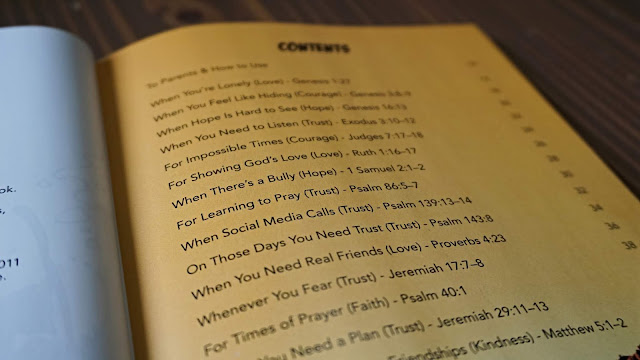 ok.
011
e.
CONTENTS
To Parents & How to Use
When You're Lonely (Love) - Genesis 1:27
When You Feel Like Hiding (Courage) - Genesis 3:8-9
When Hope Is Hard to See (Hope) - Genesis 16:13
When You Need to Listen (Trust) - Exodus 3:10-12
For Impossible Times (Courage) - Judges 7:17-18
For Showing God's Love (Love) - Ruth 1:16-17
When There's a Bully (Hope) - 1 Samuel 2:1-2
For Learning to Pray (Trust) - Psalm 86:5-7
When Social Media Calls (Trust) - Psalm 139:13-14
On Those Days You Need Trust (Trust) - Psalm 143:8
When You Need Real Friends (Love) - Proverbs 4:23
Whenever You Fear (Trust) - Jeremiah 17:7-8
For Times of Prayer (Faith) - Psalm 40:1
You Need a Plan (Trust) - Jeremiah 29:11-13
Friendships (Kindness) - Matthew 5:1-2
32
34
36
38